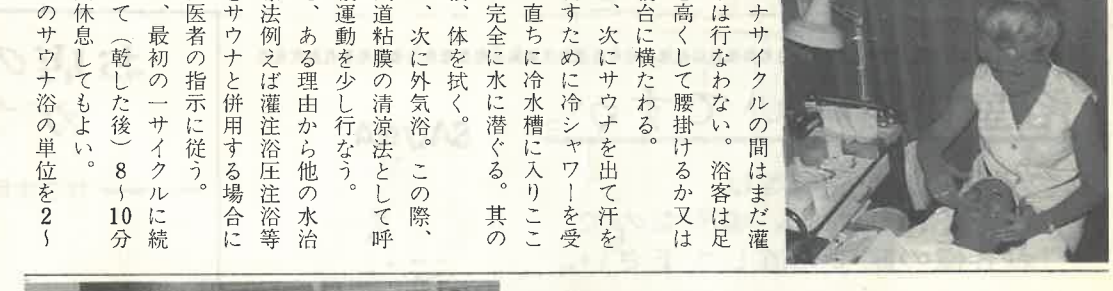 ナサイクルの間はまだ灌
は行なわない。浴客は足
高くして腰掛けるか又は
台に横たわる。
、次にサウナを出て汗を
すために冷シャワーを受
直ちに冷水槽に入りここ
完全に水に潜ぐる。其の
、体を拭く。
、次に外気浴。この際、
道粘膜の清涼法として呼
運動を少し行なう。
、ある理由から他の水治
法例えば灌注浴圧注浴等
サウナと併用する場合に
医者の指示に従う。
、最初の一サイクルに続
て（乾した後）8〜10分
休息してもよい。
のサウナ浴の単位を2〜